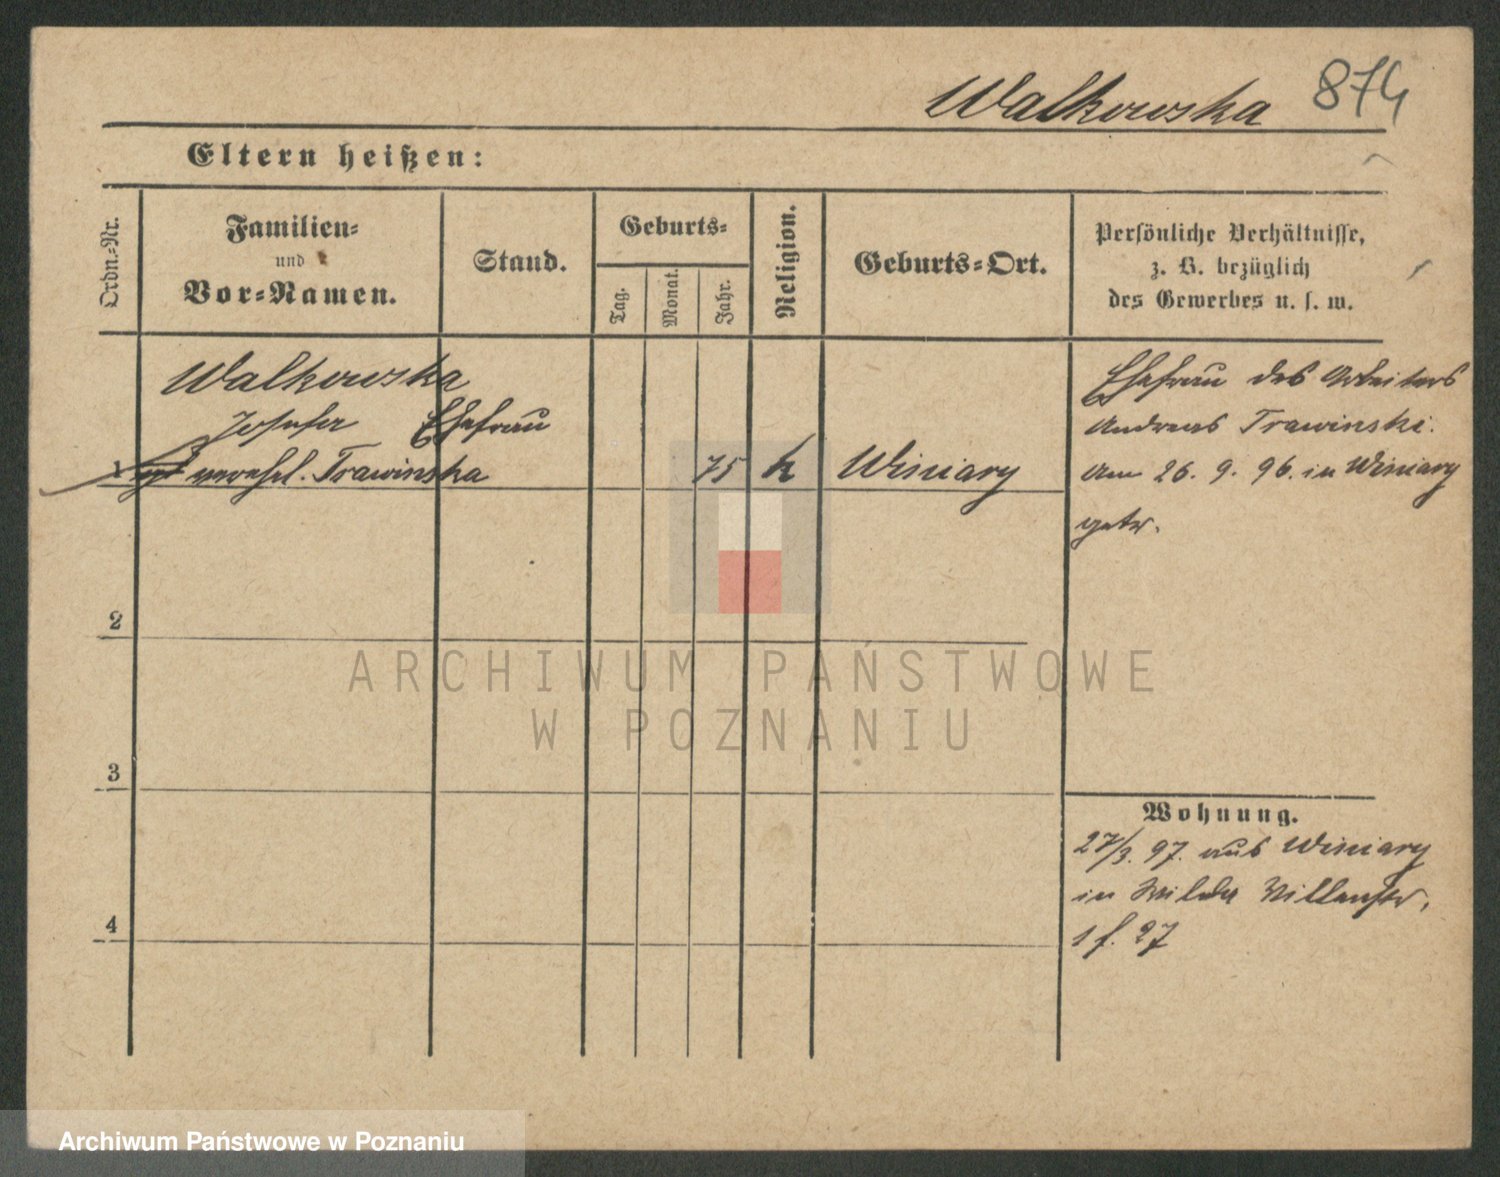 Walkowska 874
Eltern heißen:
Ordn.-Nr.
Familien-
und
Vor-Namen.
Stand.
Geburts-
Tag.
Monat.
Jahr.
Religion.
Geburts-Ort.
Persönliche Verhältnisse,
z. B. bezüglich
des Gewerbes u. s. w.
Walkowska
Josefa Ehefrau
1 verehel. Trawinska 75 k Winiary
Ehefrau des Arbeiters
Andreas Trawinski.
am 26. 9. 96. in Winiary
getr.
2
3
4
Wohnung.
27/3. 97. aus Winiary
in Wilda Villenstr.
1 f. 27
ARCHIWUM PAŃSTWOWE
W POZNANIU
Archiwum Państwowe w Poznaniu